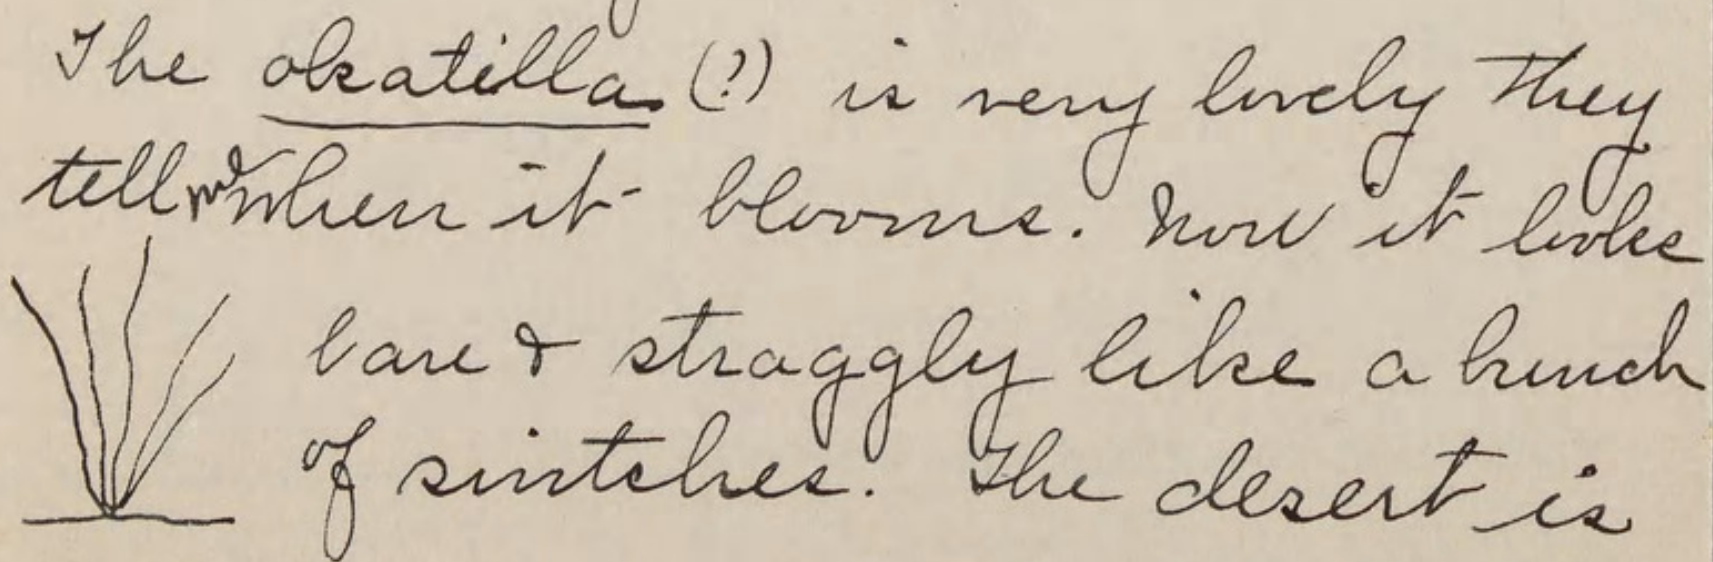 The okatilla (?) is very lovely they
tell me when it blooms. Now it looks
bare & straggly like a bunch
of switches. The desert is